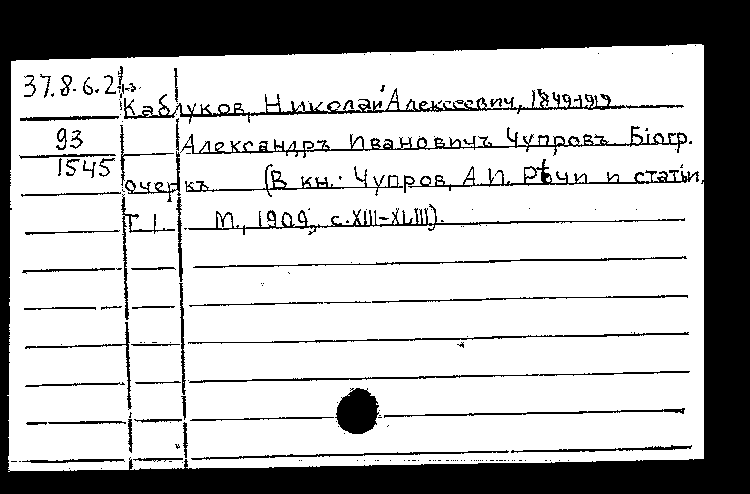 37.8.6.2
Каблуков, Николай Алексеевич, 1849-1919
93
1545
Александръ Ивановичъ Чупровъ. Біогр.
очеркъ (В кн.: Чупров, А.И. Рѣчи и статьи,
Т. 1. М., 1909, с. XIII-XLIII).